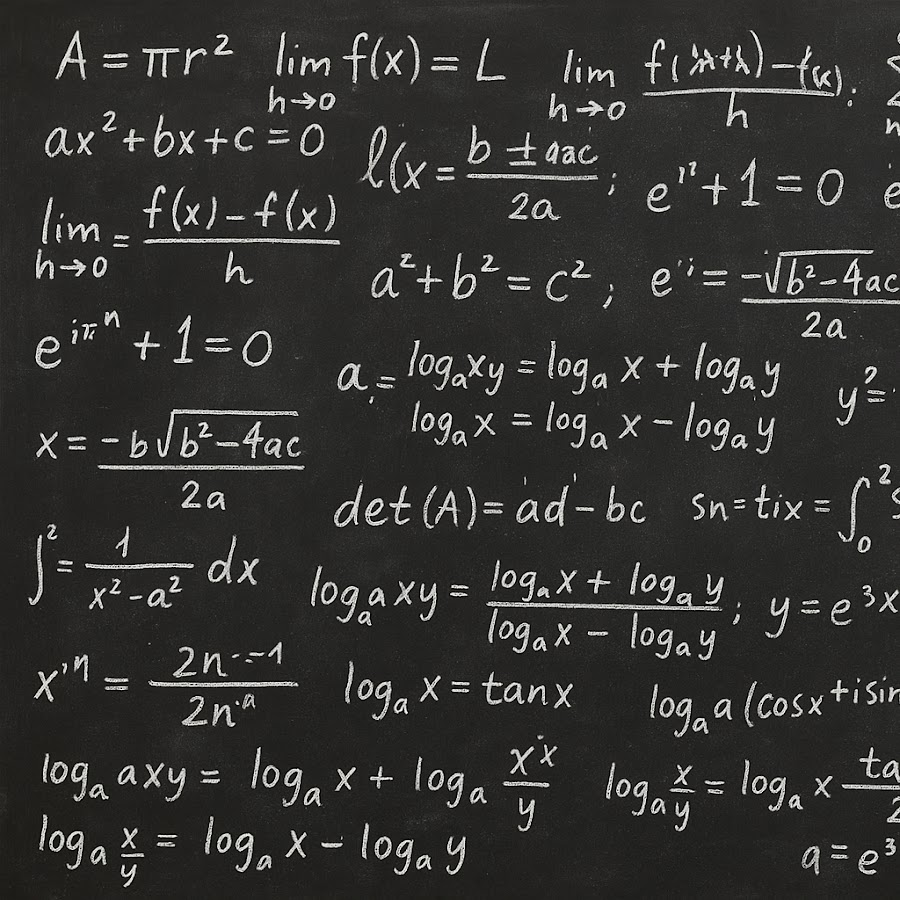 A = πr² lim h→0 f(x) = L lim h→0 f( )−f(x) / h .
ax² + bx + c = 0 l(x = b ± aac / 2a ; eⁿ + 1 = 0 e
lim h→0 = f(x) − f(x) / h
a² + b² = c² ; e = −√b² − 4ac / 2a
e^iπⁿ + 1 = 0
a = logₐxy = logₐ x + logₐ y y² =
logₐ x = logₐ x − logₐ y
x = −b√b² − 4ac / 2a
det (A) = ad − bc sn = tix = ∫₀²
∫² = 1 / x² − a² dx
logₐ xy = logₐ x + logₐ y / logₐ x − logₐ y ; y = e³x
x'ⁿ = 2n − 1 / 2n
logₐ x = tan x logₐ a (cos x + i sin
logₐ axy = logₐ x + logₐ xˣ / y logₐ x/y = logₐ x ta / 2
logₐ x/y = logₐ x − logₐ y a = e³